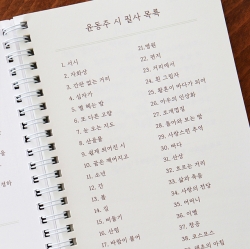 윤동주 시 필사 목록
1. 서시
2. 자화상
3. 안현 있는 거리
4. 십자가
5. 별 헤는 밤
6. 또 다른 고향
7. 눈 오는 지도
8. 산골물
9. 쉽게 씌여진 시
10. 꿈은 깨어지고
11. 소년
12. 간
13. 봄
14. 길
15. 버들가
16. 산협
17. 바람이 불어
21. 병원
22. 편지
23. 거리에서
24. 흰 그림자
25. 황혼이 바다가 되어
26. 아우의 인상화
27. 조개껍질
28. 돌아와 보는 밤
29. 사랑스런 추억
30. 바다
31. 산상
32. 흐르는 거리
33. 삶과 죽음
34. 사랑의 전당
35. 어머니
36. 이별
37. 창공
38. 코스모스